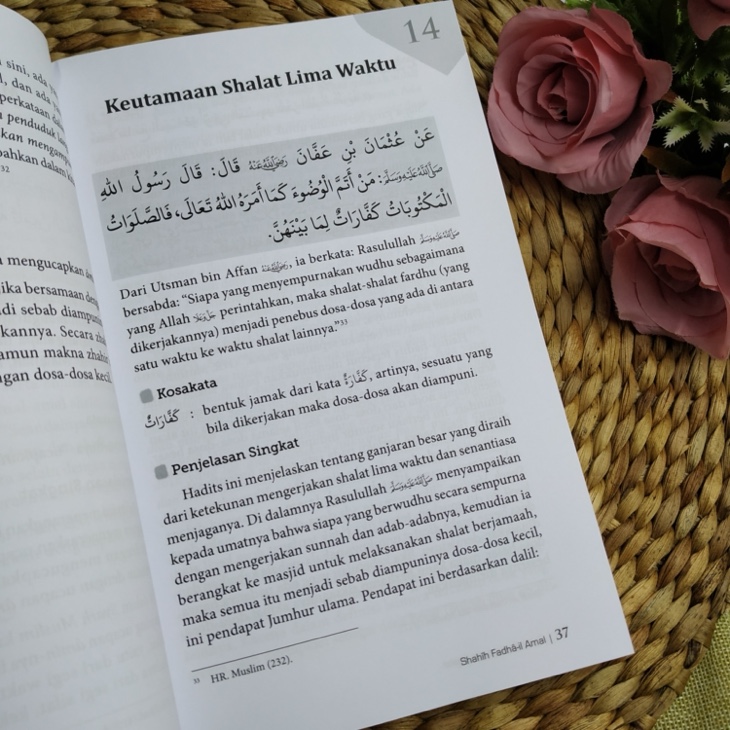 sini, ada
dan ada
perkataan
penduduk
32
mengucapkan
bersamaan
di sebab
Secara
amun makna
dosa-dosa kecil
14
Keutamaan Shalat Lima Waktu
عَنْ عُثْمَانَ بْنِ عَفَّانَ رَضِيَ اللَّهُ عَنْهُ قَالَ: قَالَ رَسُولُ اللهِ
صَلَّى اللَّهُ عَلَيْهِ وَسَلَّمَ: مَنْ أَتَمَّ الْوُضُوءَ كَمَا أَمَرَهُ اللهُ تَعَالَى، فَالصَّلَوَاتُ
الْمَكْتُوبَاتُ كَفَّارَاتٌ لِمَا بَيْنَهُنَّ.
Dari Utsman bin Affan رَضِيَ اللَّهُ عَنْهُ, ia berkata: Rasulullah صَلَّى اللَّهُ عَلَيْهِ وَسَلَّمَ
bersabda: “Siapa yang menyempurnakan wudhu sebagaimana
yang Allah perintahkan, maka shalat-shalat fardhu (yang
dikerjakannya) menjadi penebus dosa-dosa yang ada di antara
satu waktu ke waktu shalat lainnya.”33
Kosakata
كَفَّارَاتٌ : bentuk jamak dari kata كَفَّارَةٌ, artinya, sesuatu yang
bila dikerjakan maka dosa-dosa akan diampuni.
Penjelasan Singkat
Hadits ini menjelaskan tentang ganjaran besar yang diraih
dari ketekunan mengerjakan shalat lima waktu dan senantiasa
menjaganya. Di dalamnya Rasulullah صَلَّى اللَّهُ عَلَيْهِ وَسَلَّمَ menyampaikan
kepada umatnya bahwa siapa yang berwudhu secara sempurna
dengan mengerjakan sunnah dan adab-adabnya, kemudian ia
berangkat ke masjid untuk melaksanakan shalat berjamaah,
maka semua itu menjadi sebab diampuninya dosa-dosa kecil,
ini pendapat Jumhur ulama. Pendapat ini berdasarkan dalil:
33 HR. Muslim (232).
Shahîh Fadhâ-il Amal | 37